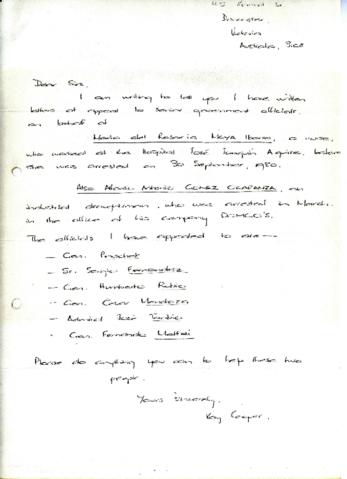 Victoria
Australia,
Dear Sir,
I am writing to let you I have written
letters of appeal to Senior government officials,
on behalf of
Maria del Rosario Moya, a nurse,
who worked at the Hospital José Joaquin Aguirre, before
she was arrested on 30 September, 1980.
Also, an
industrial draughtsman, who was arrested in March,
in the office of his company
The officials I have appealed to are —
— Gen. Pinochet
— Sr. Sergio Fernandez
— Gen. Humberto
— Gen. Cesar Mendoza
— Admiral José
— Gen. Fernando Matthei
Please do anything you can to help these two
people.
Yours Sincerely,
Kay Cooper.